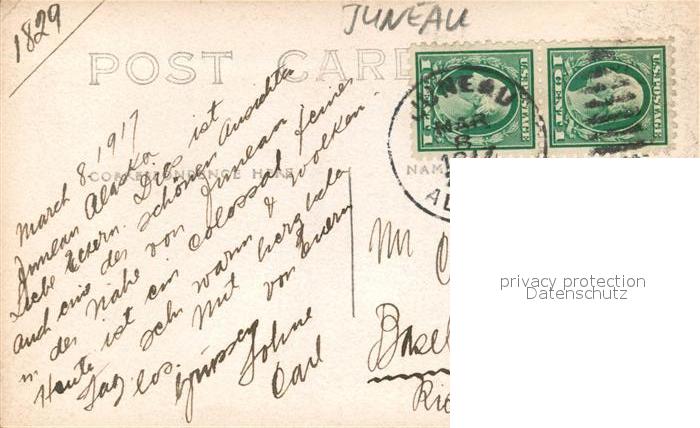 1829
JUNEAU
POST CARD
U.S. POSTAGE
1 CENT 1
U.S. POSTAGE
1 CENT 1
JUNEAU
MAR
8
1917
AL
CORRESPONDENCE HERE
NAM
March 8. 1917
Juneau Alaska
Liebe Eltern. Dies ist
auch eine der schönen Ansichten
in der Nähe von Juneau
Heute ist ein colossal feines
sehr warm & Wolken-
los. Mit herzliche
Grüssen von Euerm
Sohne
Carl
Mr
Basel
privacy protection
Datenschutz